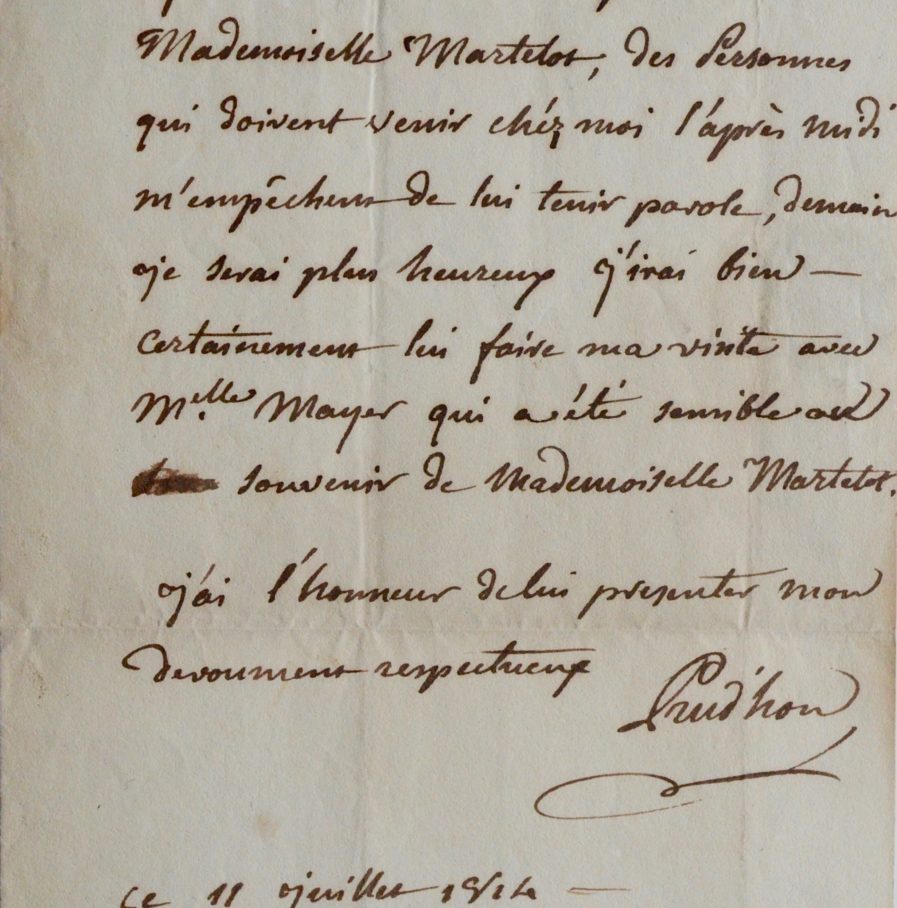 Mademoiselle Martelot, des Personnes
qui doivent venir chéz moi l'après midi
m'empêchent de lui tenir parole, demain
je serai plus heureux j'irai bien —
certainement lui faire ma visite avec
M.elle Mayer qui a été sensible au
souvenir de Mademoiselle Martelot.
j'ai l'honneur de lui presenter mon
devoument respectueux
Prud'hon
ce 11 juillet —